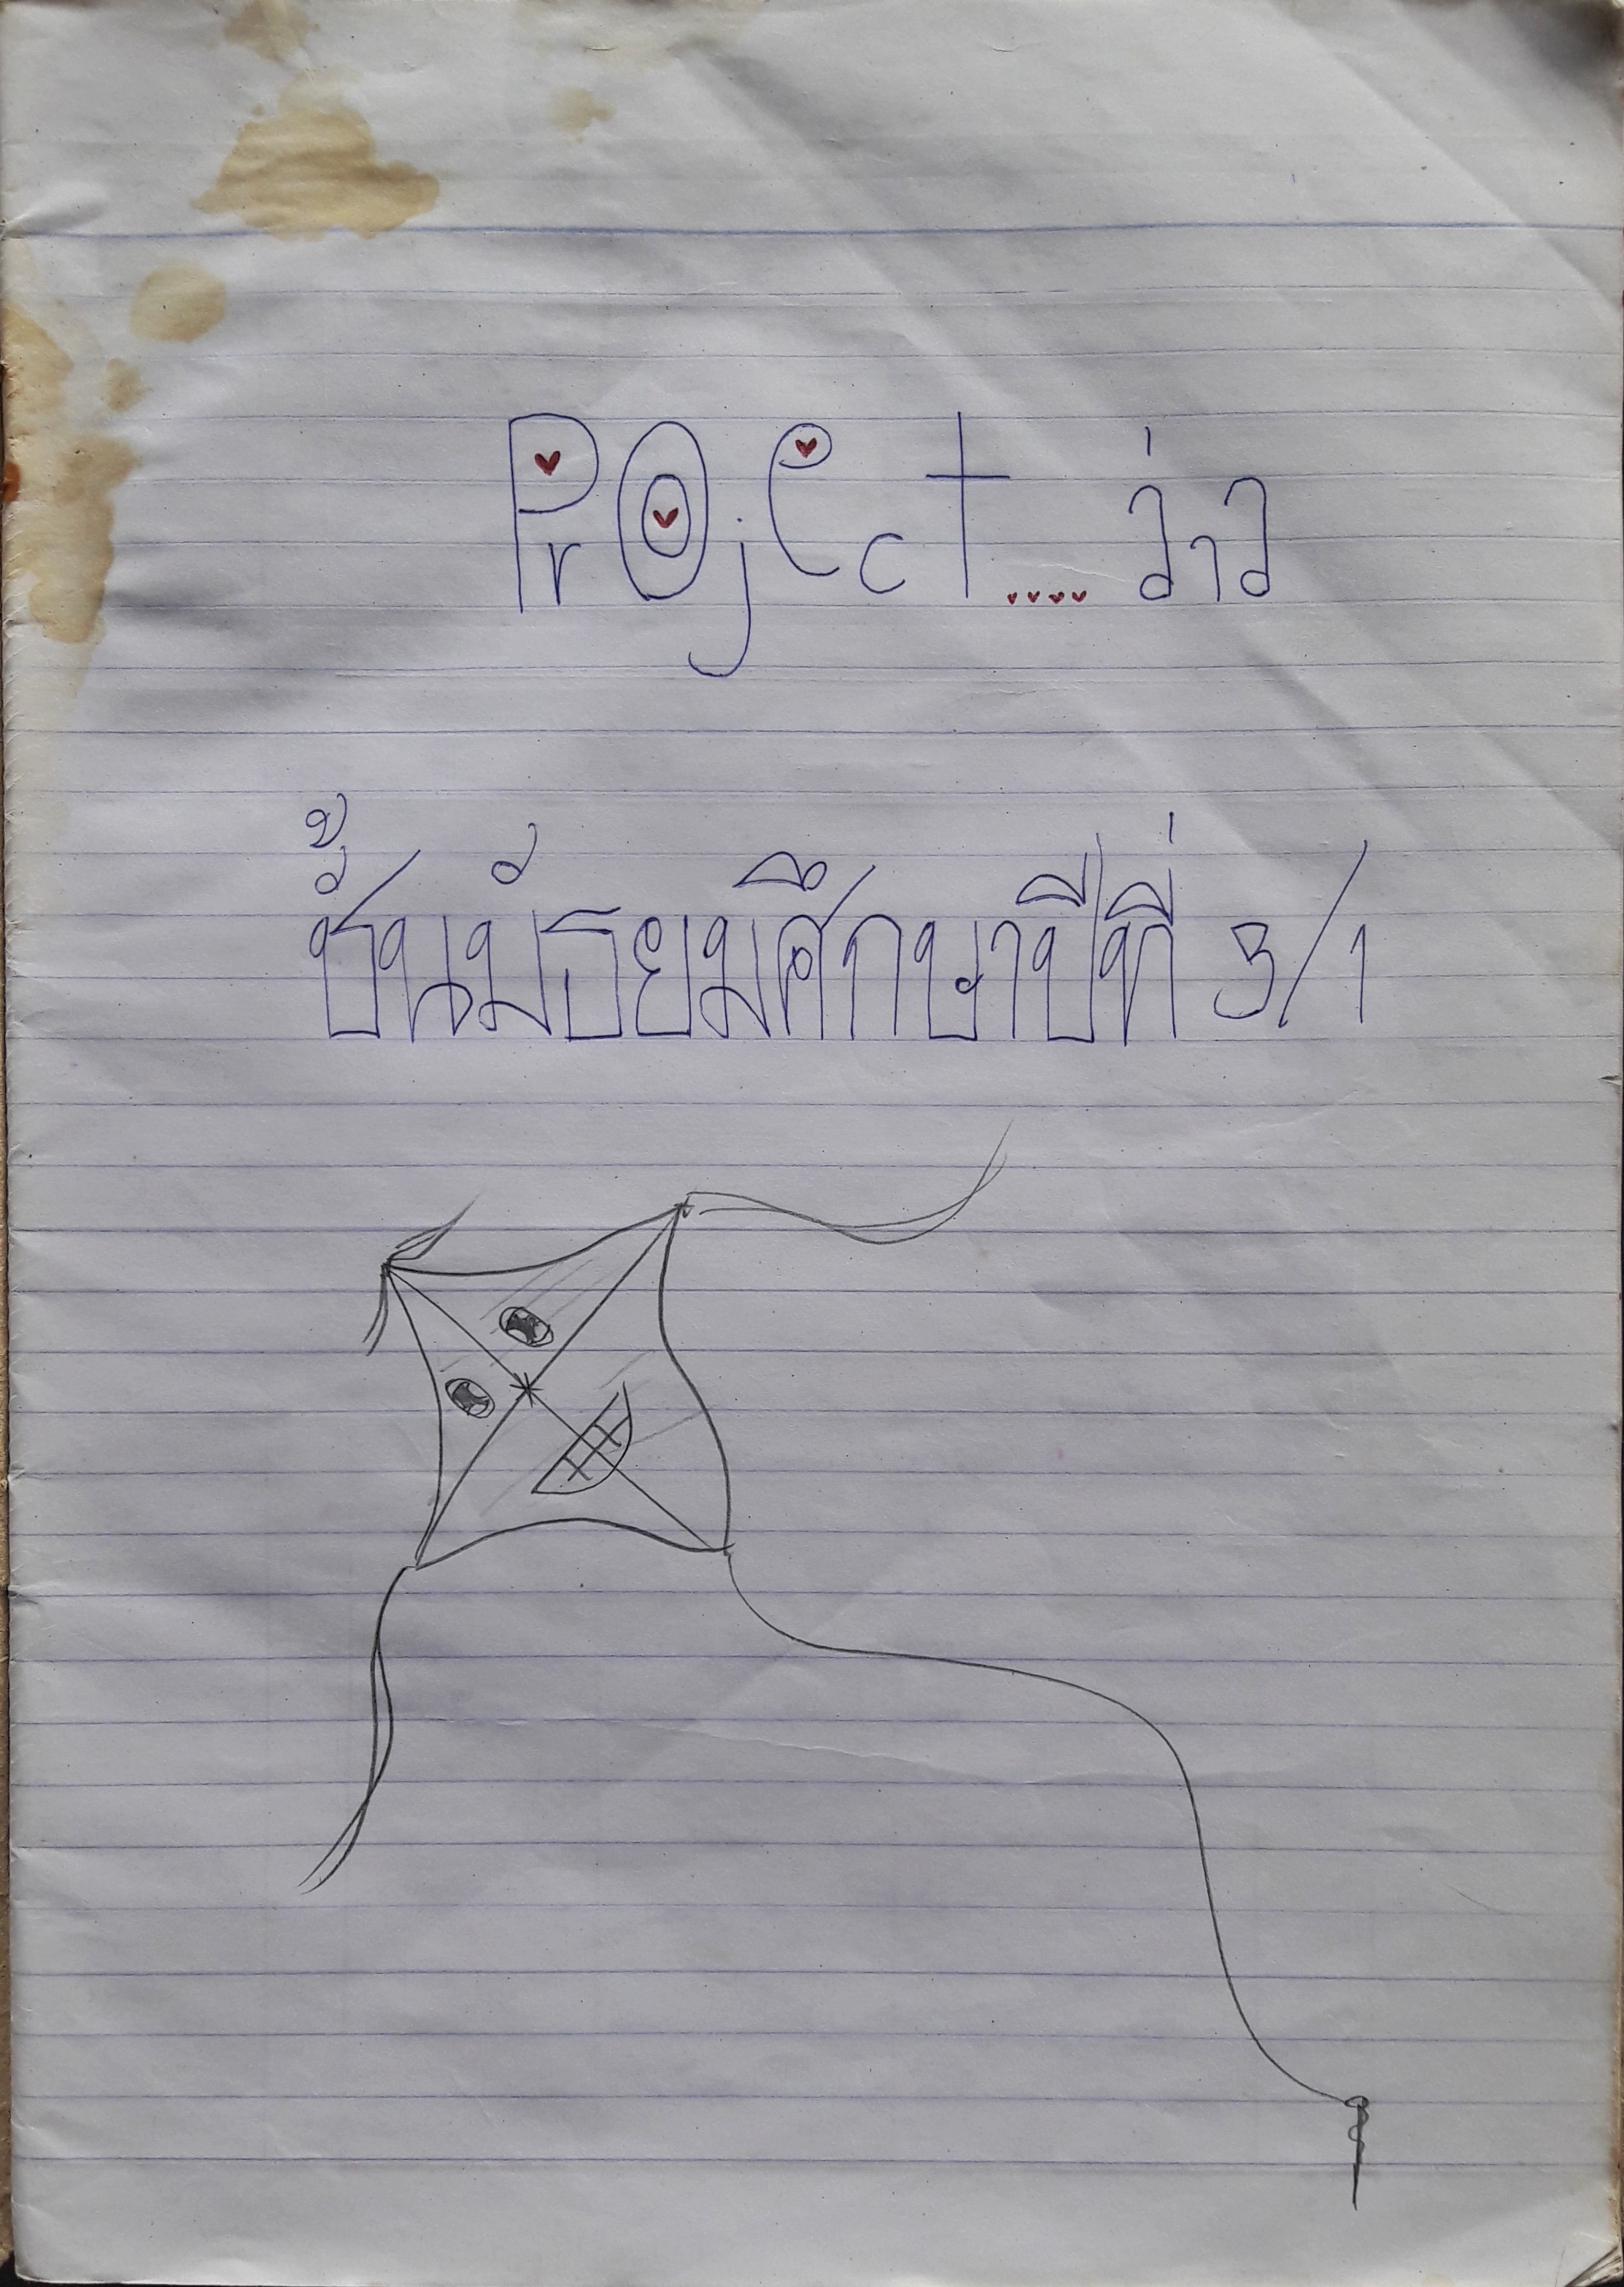 Project.... ว่าว
ชั้นมัธยมศึกษาปีที่ 3/1